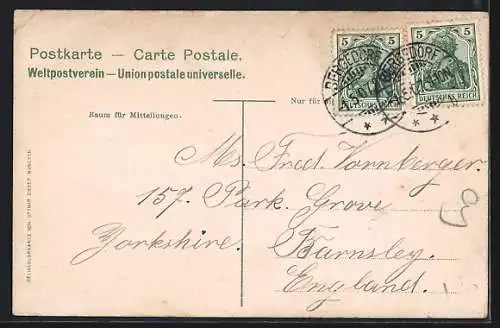 Postkarte — Carte Postale.
Weltpostverein — Union postale universelle.
5 5 5 5
BERGEDORF BERGEDORF
DEUTSCHES REICH DEUTSCHES REICH
Nur für
Raum für Mitteilungen.
Ms. Fred. Vornberger.
157. Park Grove.
Yorkshire. Barnsley.
England.